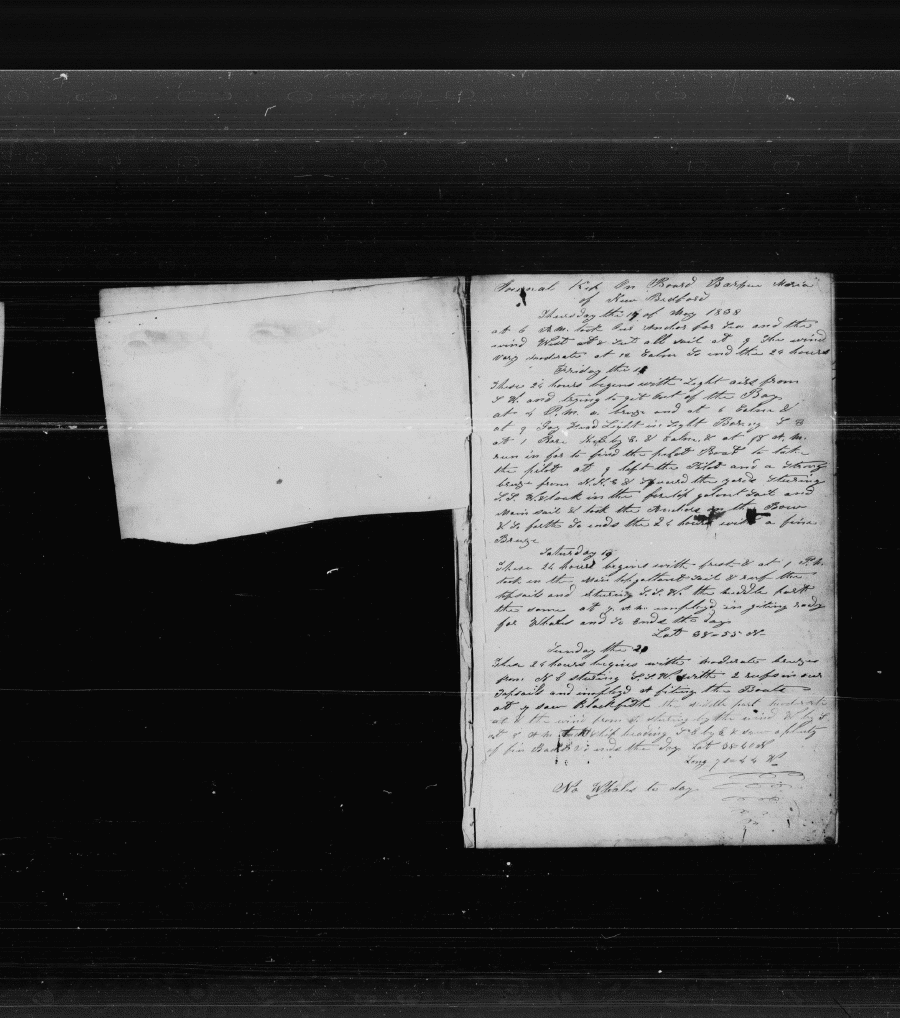 Journal Kept On Board Barque Maria
of New Bedford
Thursday the 17 of May 1838
at 6 A.M. took our Anchor for Sea and the
wind West at 8 Set all sail at 9 the wind
very moderate at 12 Calm So end the 24 hours
Friday the 18
These 24 hours begins with Light airs from
S W. and trying to get out of the Bay
at 4 P.M. a breze and at 6 Calm &
at 9 Gay Head Light in Sight Baring
at 1 by E. & Calm & at A.M.
run in for to find the pilot Boat to take
the pilot at 9 left the Pilot and a Strong
breze from N.N.E & Squared the yards Stearing
S.S.W. & took in the foretop galont Sail and
Main sail & took the Anchors on the Bow
& So forth So ends the 24 hours with a fine
Breze
Saturday 19
These 24 hours begins with fresh & at 1 P.M.
took in the Main topgallant Sail & reef the
topsails and stering S.S.W. the middle part
the same at A.M. imployd in geting ready
for Whales and So Ends the day
Latt 38-55 N-
Sunday the 20
These 24 hours begins with Moderate brezes
from N stering S.S.W. with 2 reefs in our
Topsails and imployd at fiting the Boats
at saw Blackfish the middle part moderate
at 8 the wind from stering by the wind W by S
at 8 A M tackt ship heading S E by E & saw a plenty
of fin Backs So ends the day Latt 38 N
Long W
No Whales to day